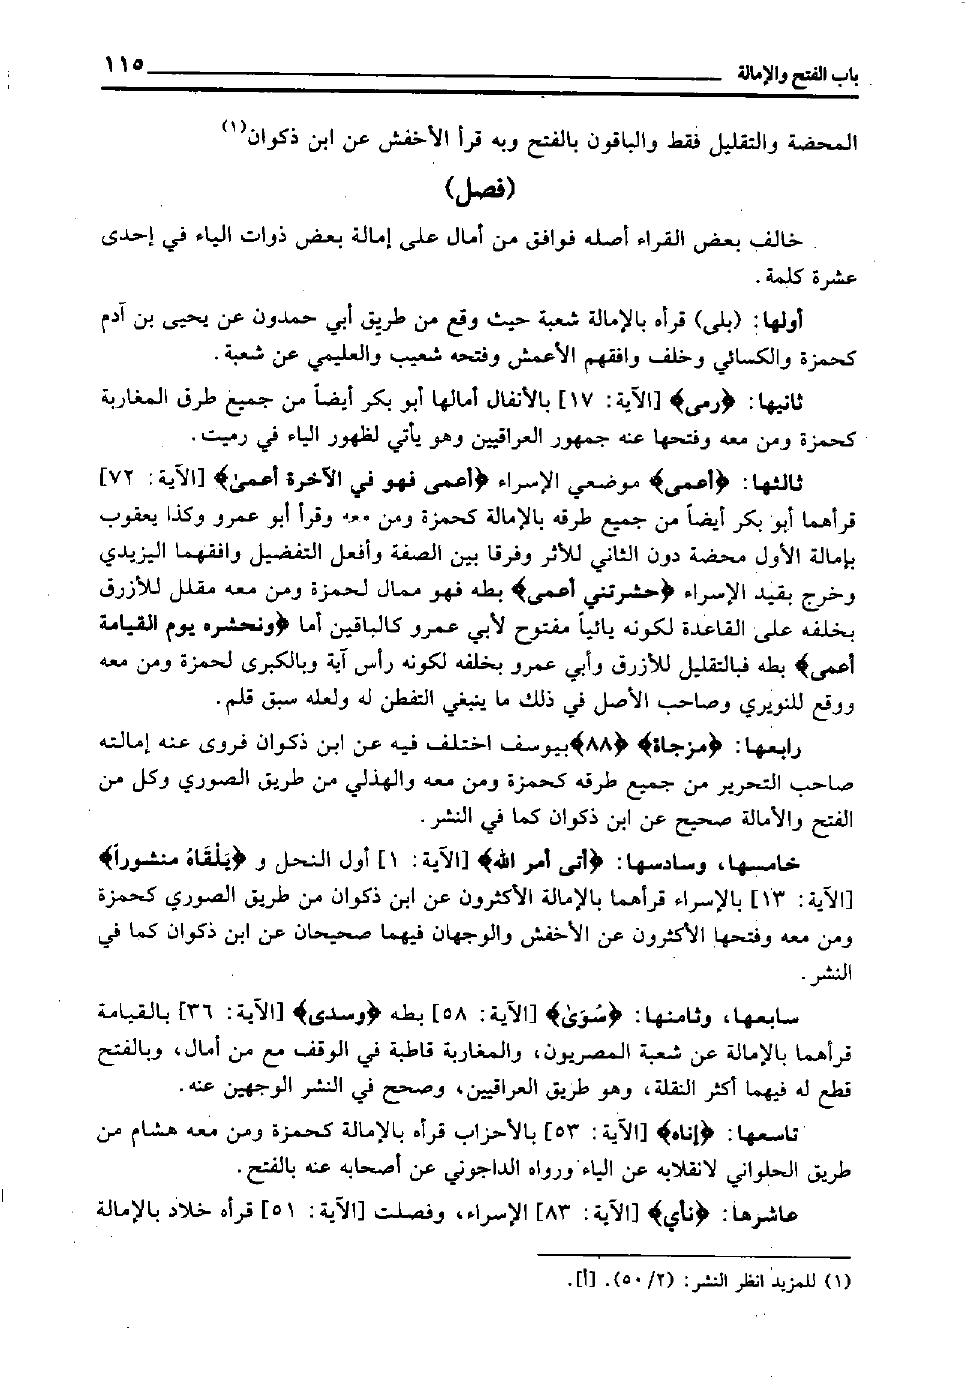 باب الفتح والإمالة ١١٥
المحضة والتقليل فقط والباقون بالفتح وبه قرأ الأخفش عن ابن ذكوان(١)
(فصل)
خالف بعض القراء أصله فوافق من أمال على إمالة بعض ذوات الياء في إحدى
عشرة كلمة.
أولها: (بلى) قرأه بالإمالة شعبة حيث وقع من طريق أبي حمدون عن يحيى بن آدم
كحمزة والكسائي وخلف وافقهم الأعمش وفتحه شعيب والعليمي عن شعبة.
ثانيها: ﴿رمى﴾ [الآية: ١٧] بالأنفال أمالها أبو بكر أيضاً من جميع طرق المغاربة
كحمزة ومن معه وفتحها عنه جمهور العراقيين وهو يأتي لظهور الياء في رميت.
ثالثها: ﴿أعمى﴾ موضعي الإسراء ﴿أعمى فهو في الآخرة أعمىٰ﴾ [الآية: ٧٢]
قرأهما أبو بكر أيضاً من جميع طرقه بالإمالة كحمزة ومن معه وقرأ أبو عمرو وكذا يعقوب
بإمالة الأول محضة دون الثاني للأثر وفرقا بين الصفة وأفعل التفضيل وافقهما اليزيدي
وخرج بقيد الإسراء ﴿حشرتني أعمى﴾ بطه فهو ممال لحمزة ومن معه مقلل للأزرق
بخلفه على القاعدة لكونه يائياً مفتوح لأبي عمرو كالباقين أما ﴿ونحشره يوم القيامة
أعمى﴾ بطه فبالتقليل للأزرق وأبي عمرو بخلفه لكونه رأس آية وبالكبرى لحمزة ومن معه
ووقع للنويري وصاحب الأصل في ذلك ما ينبغي التفطن له ولعله سبق قلم.
رابعها: ﴿مزجاة﴾ ﴿٨٨﴾بيوسف اختلف فيه عن ابن ذكوان فروى عنه إمالته
صاحب التحرير من جميع طرقه كحمزة ومن معه والهذلي من طريق الصوري وكل من
الفتح والأمالة صحيح عن ابن ذكوان كما في النشر.
خامسها، وسادسها: ﴿أتى أمر الله﴾ [الآية: ١] أول النحل و ﴿يَلْقَاهُ منشوراً﴾
[الآية: ١٣] بالإسراء قرأهما بالإمالة الأكثرون عن ابن ذكوان من طريق الصوري كحمزة
ومن معه وفتحها الأكثرون عن الأخفش والوجهان فيهما صحيحان عن ابن ذكوان كما في
النشر.
سابعها، وثامنها: ﴿سُوَىٰ﴾ [الآية: ٥٨] بطه ﴿وسدى﴾ [الآية: ٣٦] بالقيامة
قرأهما بالإمالة عن شعبة المصريون، والمغاربة قاطبة في الوقف مع من أمال، وبالفتح
قطع له فيهما أكثر النقلة، وهو طريق العراقيين، وصحح في النشر الوجهين عنه.
تاسعها: ﴿إناه﴾ [الآية: ٥٣] بالأحزاب قرأه بالإمالة كحمزة ومن معه هشام من
طريق الحلواني لانقلابه عن الياء ورواه الداجوني عن أصحابه عنه بالفتح.
عاشرها: ﴿نأي﴾ [الآية: ٨٣] الإسراء، وفصلت [الآية: ٥١] قرأه خلاد بالإمالة
(١) للمزيد انظر النشر: (٥٠/٢). [أ].